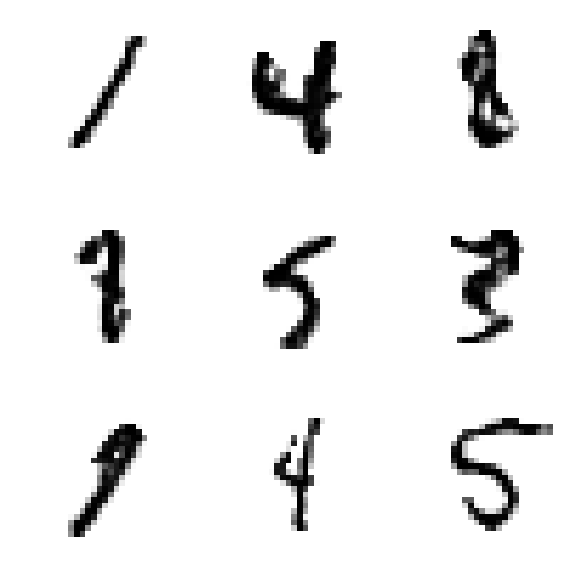 1 4 8
1 5 3
9 4 5